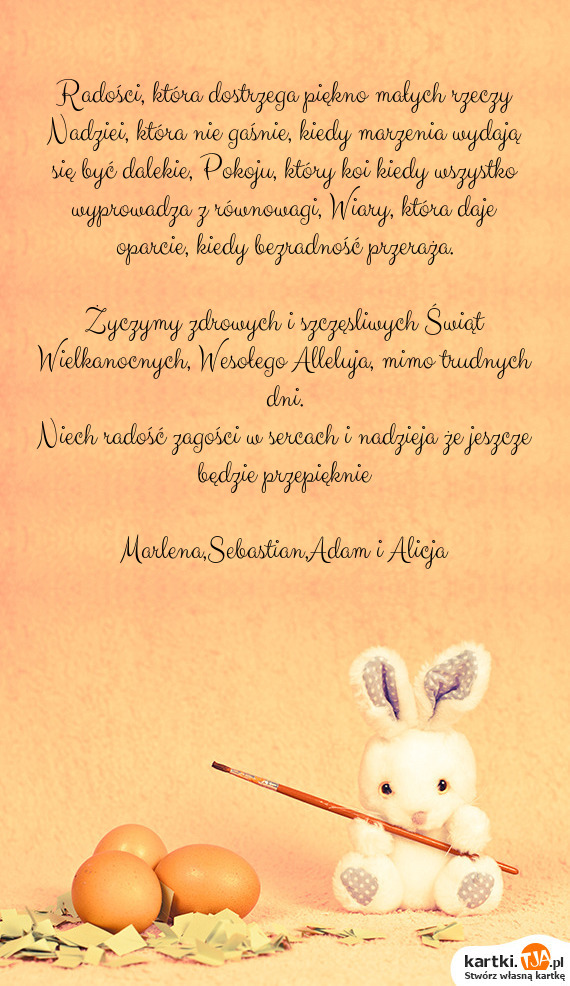 Radości, która dostrzega piękno małych rzeczy
Nadziei, która nie gaśnie, kiedy marzenia wydają
się być dalekie, Pokoju, który koi kiedy wszystko
wyprowadza z równowagi, Wiary, która daje
oparcie, kiedy bezradność przeraża.
Życzymy zdrowych i szczęsliwych Świąt
Wielkanocnych, Wesołego Alleluja, mimo trudnych
dni.
Niech radość zagości w sercach i nadzieja że jeszcze
będzie przepięknie
Marlena,Sebastian,Adam i Alicja
kartki.TJA.pl
Stwórz własną kartkę